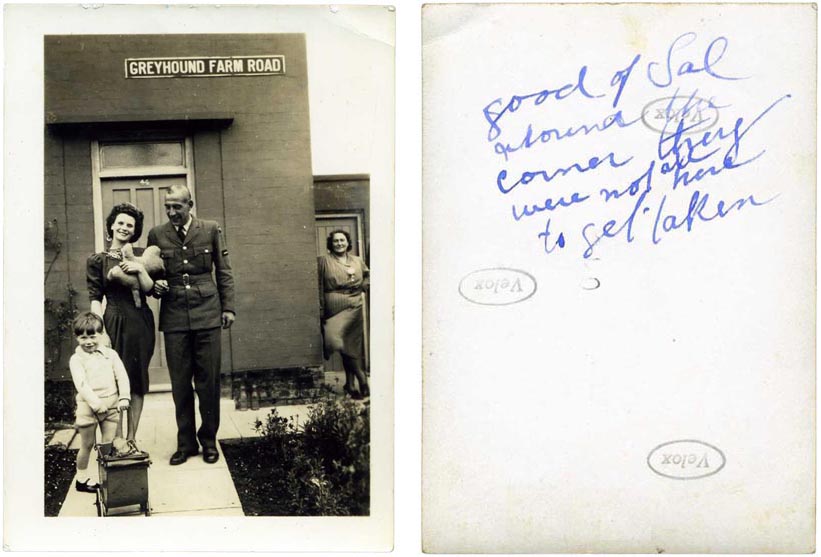 GREYHOUND FARM ROAD
good of Sal
round the
corner they
were not all here
to get taken
Velox
Velox
Velox